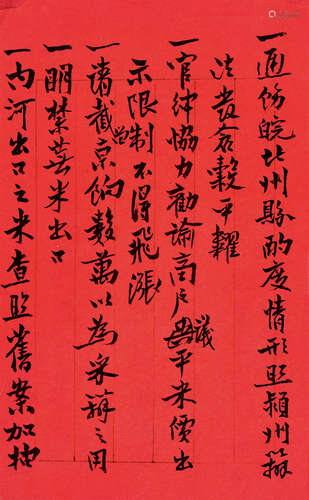 一通飭皖北州縣酌度情形照潁州辦
法發倉穀平糶
一官紳協力勸諭商戶議平米價出
示限制不得飛漲
一請截留京餉數萬以為采辦之用
一明禁蕪米出口
一內河出口之米查照舊案加抽